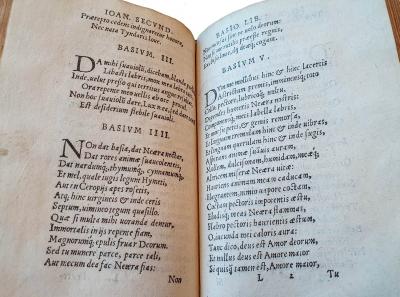 IOAN. SECVND.
Præcepto cedens indignaretur honore,
Nec nata Tyndaris Ioue.
BASIVM. III.
DA mihi suauiolũ, dicebam, blanda puella,
Libasti labris, mox mea labra tuis.
Inde, uelut presso qui territus angue resultat,
Ora repente meo uellis ab ore procul.
Non hoc suauiolũ dare, Lux mea, sed dare tantum
Est desiderium flebile suauioli.
BASIVM IIII.
NOn dat basia, dat Neæra nectar,
Dat rores animæ suaueolentes,
Dat nardumq́;, thymumq́;, cynnamumq́;
Et mel, quale iugis legunt Hymetti,
Aut in Cecropijs apes rosetis,
Atq; hinc uirgineis & inde ceris
Septum, uimineo tegunt quasillo.
Quæ si multa mihi uoranda dentur,
Immortalis in ijs repente fiam,
Magnorumq́; epulis fruar Deorum.
Sed tu munere parce, parce tali,
Aut mecum dea fac Neæra fias:
Non
BASIO. LIB.
BASIVM V.
DVm me mollibus hinc & hinc Lacertis
Astrictum premis, imminensq́;
collo, pectore, lubricoq́; uultu,
Dependes humeris Neæra nostris,
Componensq́; meis labella labris,
Et morsu petis, & gemis remorsa,
Et linguam tremulam hinc & inde uibras,
Et linguam querulam hinc & inde sugis,
Aspirans animæ suauis auram
Mollem, dulcisonam, humidam, meæq́;
Altricem miseræ Neæra uitæ:
Hauriens animam meam caducam,
Flagrantem, nimio uapore coctam,
Coctam pectoris impotentis æstu,
Eludisq́; meas Neæra flammas
Flabro pectoris haurientis æstum,
O, iucunda mei caloris aura:
Tunc dico, deus est Amor deorum,
Et nullus deus est Amore maior,
Si quisquã tamen est Amore maior,
L 2 Tu